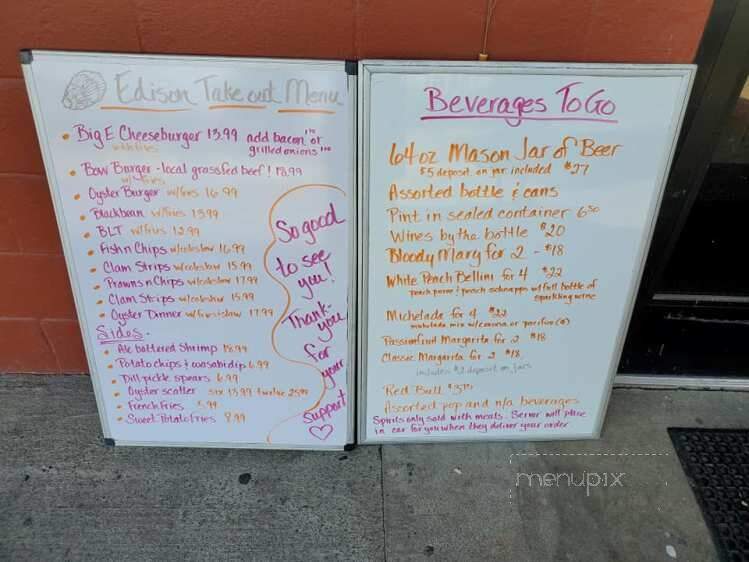 Edison Take out Menu
Big E Cheeseburger 13.99 add bacon or
w/fries grilled onions
Bow Burger - local grassfed beef! 18.99
w/fries
Oyster Burger w/fries 16.99
Blackbean w/fries 13.99
BLT w/fries 12.99
Fish n Chips w/coleslaw 16.99
Clam Strips w/coleslaw 15.99
Prawns n Chips w/coleslaw 17.99
Clam Strips w/coleslaw 15.99
Oyster Dinner w/fries+slaw 17.99
Sides.
Ale battered Shrimp 18.99
Potato chips + wasabi dip 6.99
Dill pickle spears 6.99
Oyster scatter six 13.99 twelve 25.99
French Fries 5.99
Sweet Potato Fries 8.99
So good
to see
you!
Thank-
you
for
your
support
Beverages To Go
64 oz Mason Jar of Beer
$5 deposit on jar included $27
Assorted bottle & cans
Pint in sealed container 6.50
Wines by the bottle $20
Bloody Mary for 2 - $18
White Peach Bellini for 4 $22
peach puree! peach schnapps w/full bottle of
sparkling wine
Michelada for 4 $22
michelada mix w/corona or pacifico (4)
Passionfruit Margarita for 2 $18
Classic Margarita for 2 $18
includes $2 deposit on jars
Red Bull
Assorted pop and n/a beverages
Spirits only sold with meals. Server will place
in car for you when they deliver your order
menupix